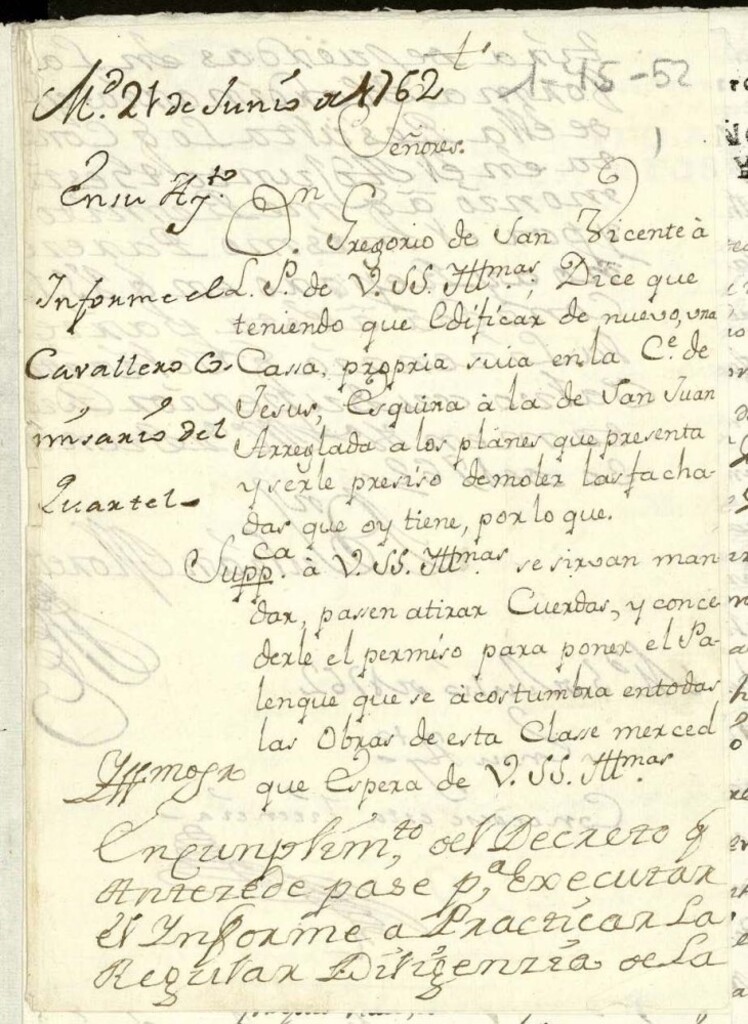 M.d 21 de Junio de 1762
1-45-52
Señores.
En su Ay.to
Dn. Gregorio de San Vicente à
Informe el
L. P. de V. SS. Illmas; Dice que
teniendo que Edificar de nuevo, una
Cavallero Co-
Cassa, propria suia en la C.e de
Jesus, Esquina à la de San Juan
misario del
Arreglada a los planes que presenta
y serle presiso demoler las facha-
Quartel
das que oy tiene, por lo que.
Supp.ca à V. SS. Illmas se sirvan man
dar, passen atirar Cuerdas, y conce
derle el permiso para poner el Pa-
lenque que se acostumbra entodas
las Obras de esta Clase merced
que Espera de V. SS. Illmas.
Illmo Sr
En Cunplim.to del Decreto q
Antezede pase p.a Executar
el Informe a Practicar La
Regular Diligenzia de La